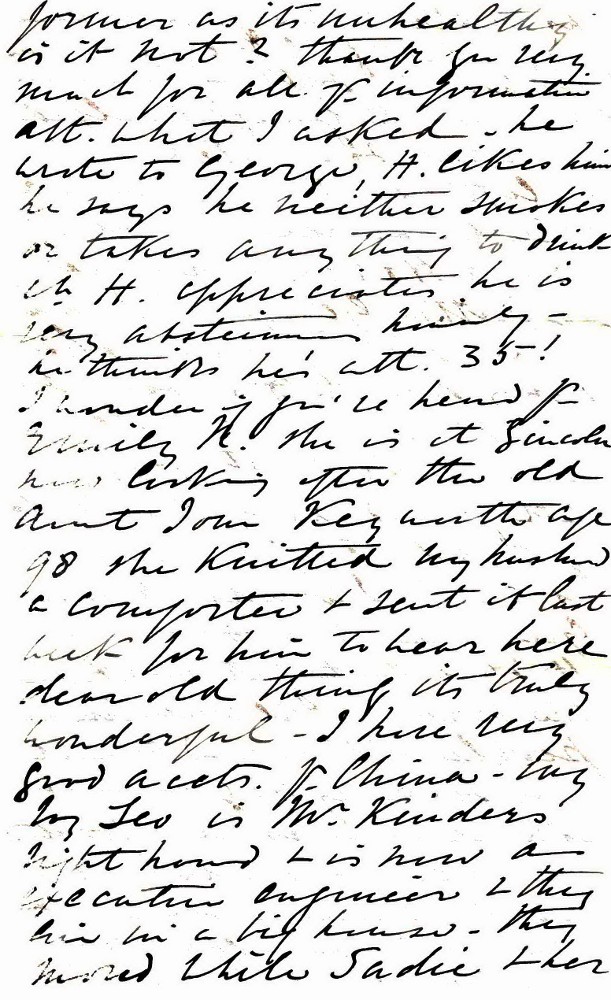 former as its unhealthy
is it not? thank you very
much for all yr information
abt. what I asked - he
wrote to George, H. likes him
he says he neither smokes
or takes any thing to drink
wh H. appreciates he is
very abstemious himself -
he thinks he's abt. 35!
I wonder if you've heard fr
Emily K. she is at Lincoln
now looking after the old
Aunt Tom Keyworth age
98 she Knitted my husband
a comforter & sent it last
week for him to wear here
dear old thing its truly
wonderful - I have very
good accts. fr China - my
boy Leo is Mr. Kinders
right hand & is now an
executive engineer & they
live in a big house - they
moved while Sadie & her